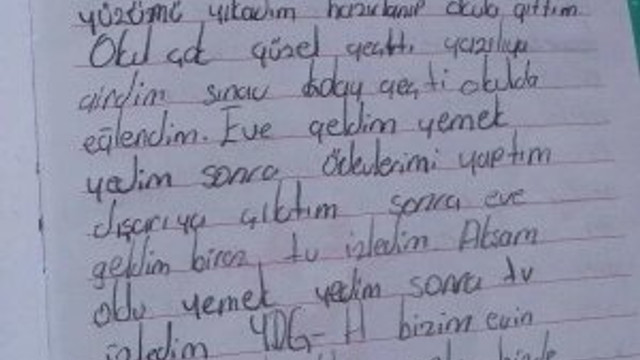 yüzümü yıkadım hazırlanıp okula gittim
Okul çok güzel geçti yazılıya
girdim sınav kolay geçti okulda
eğlendim. Eve geldim yemek
yedim sonra ödevlerimi yaptım
dışarıya çıktım sonra eve
geldim biraz tv izledim Aksam
oldu yemek yedim sonra tv
izledim YDG-H bizim evin